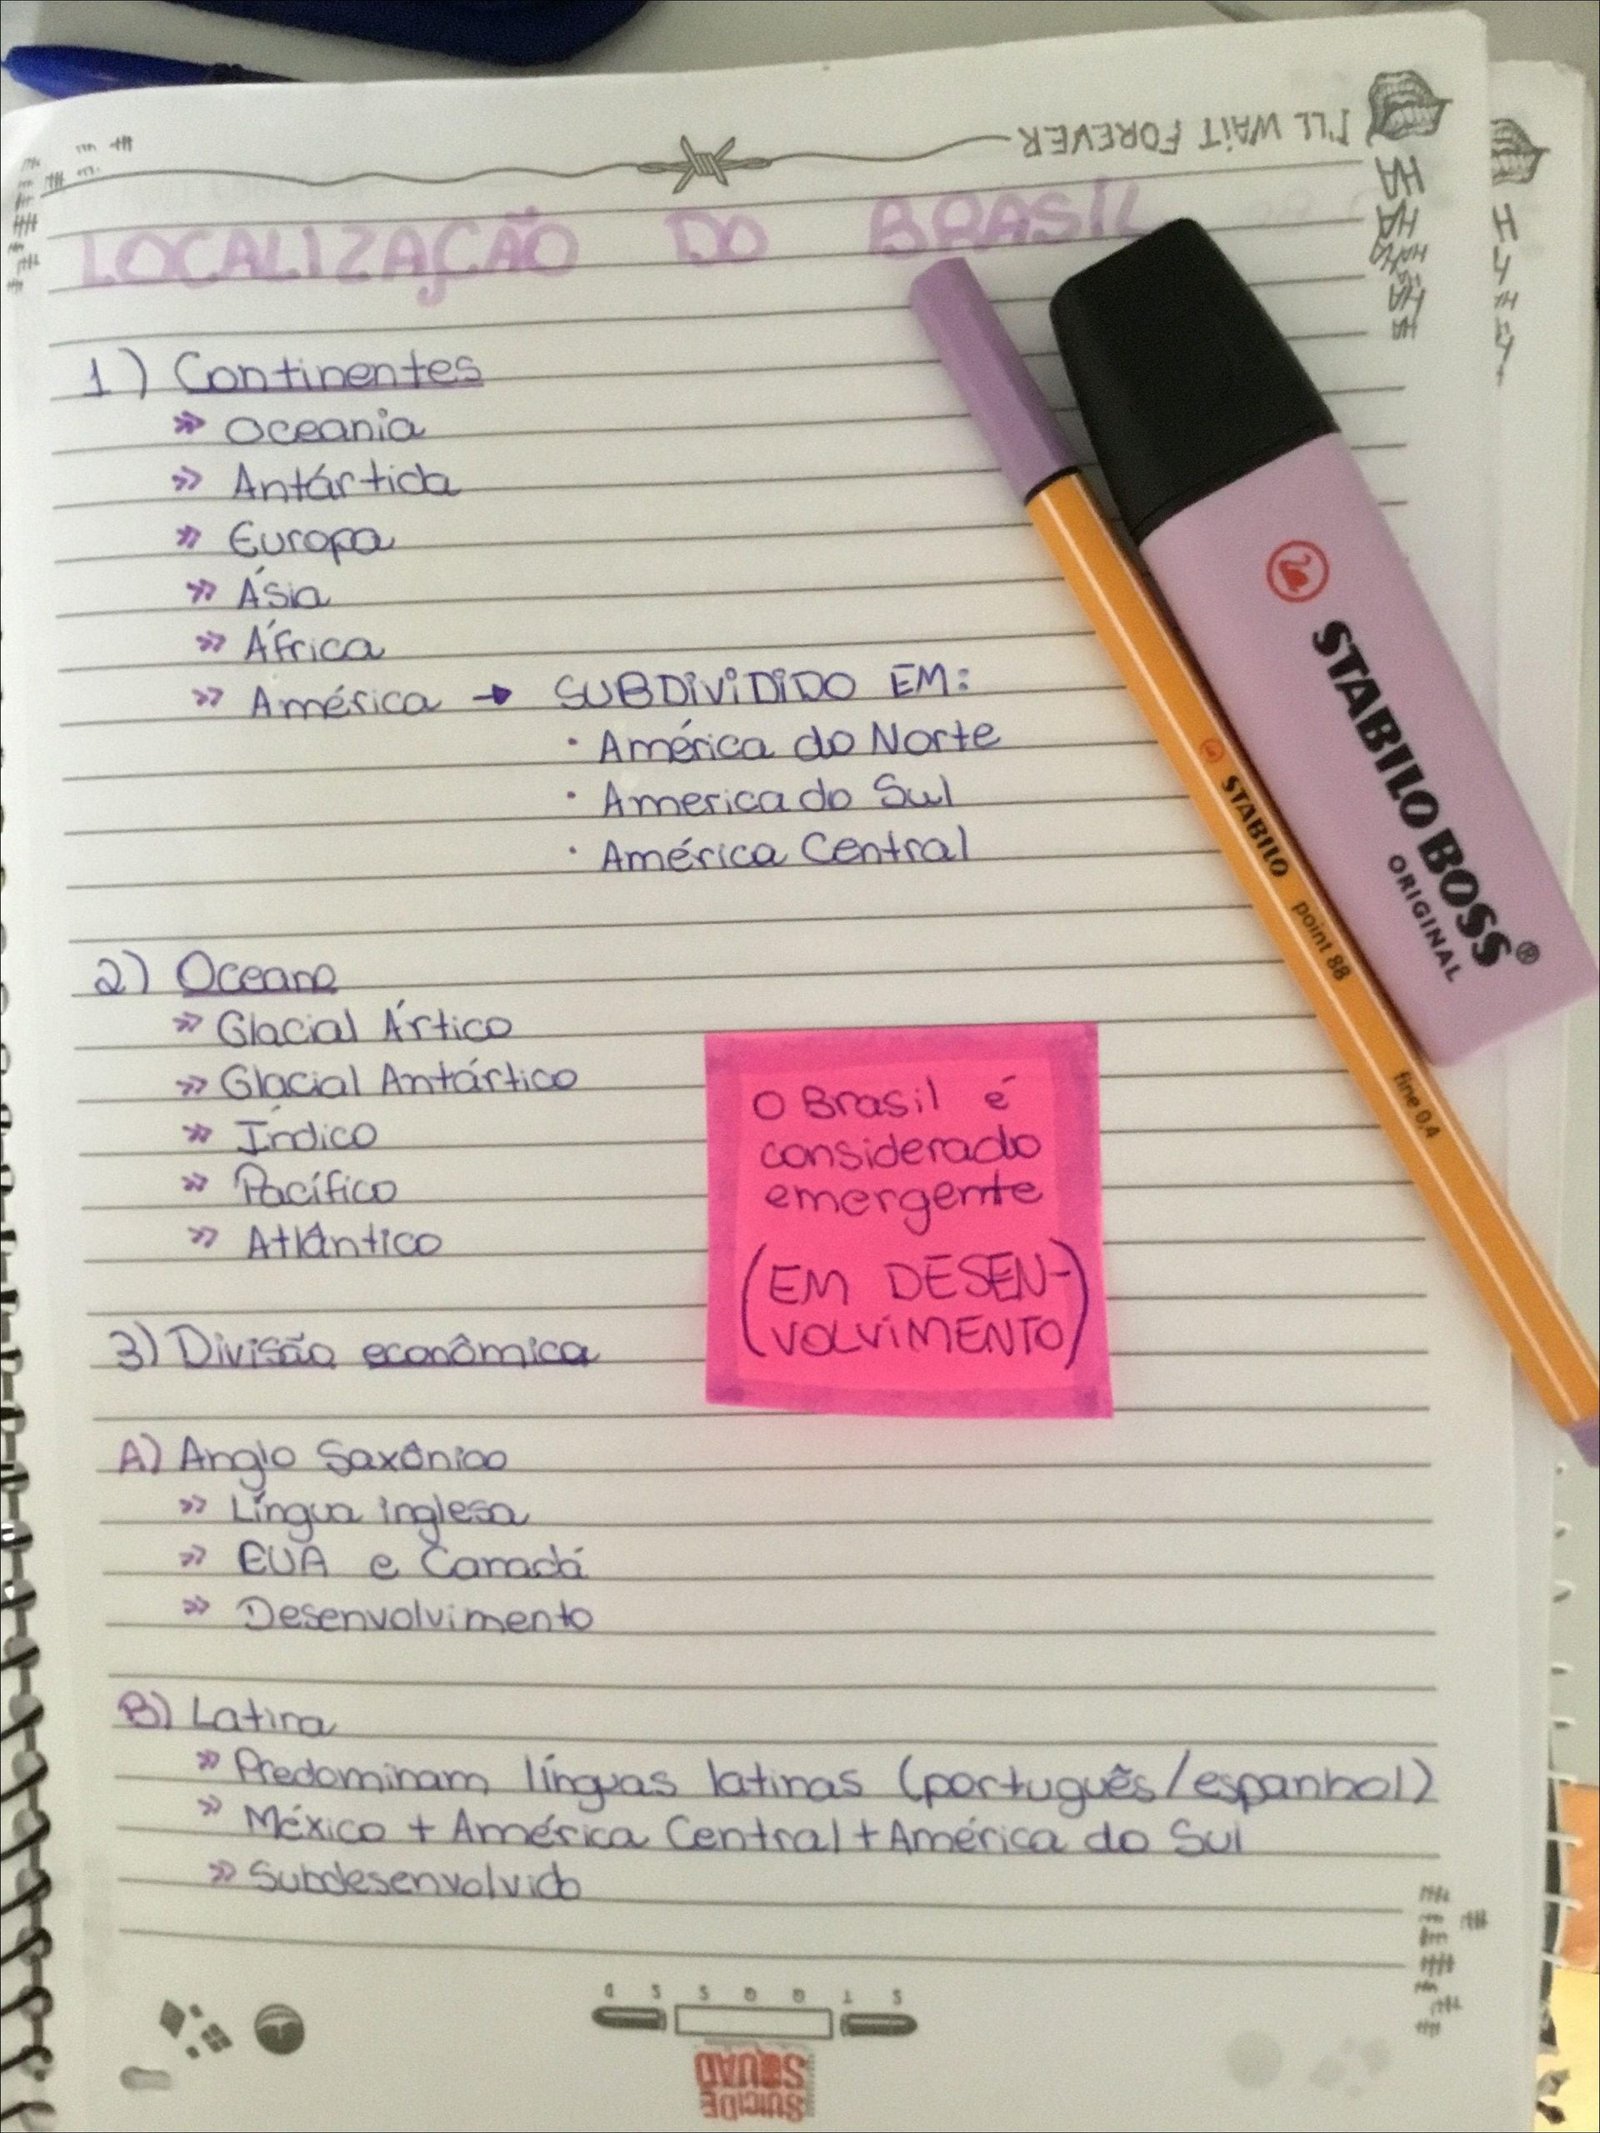 I'LL WAIT FOREVER
HA
HA
HAHA
HA
HA
LOCALIZAÇÃO DO BRASIL
1) Continentes
» Oceania
» Antártida
» Europa
» Ásia
» África
» América → SUBDIVIDIDO EM:
· América do Norte
· America do Sul
· América Central
2) Oceano
» Glacial Ártico
» Glacial Antártico
» Índico
» Pacífico
» Atlântico
3) Divisão econômica
A) Anglo Saxônico
» Língua inglesa
» EUA e Canadá
» Desenvolvimento
B) Latina
» Predominam línguas latinas (português/espanhol)
» México + América Central + América do Sul
» Subdesenvolvido
O Brasil é
considerado
emergente
(EM DESEN-
VOLVIMENTO)
STABILO BOSS®
ORIGINAL
STABILO point 88 fine 0,4
S T Q Q S S D
SUICIDE
SQUAD